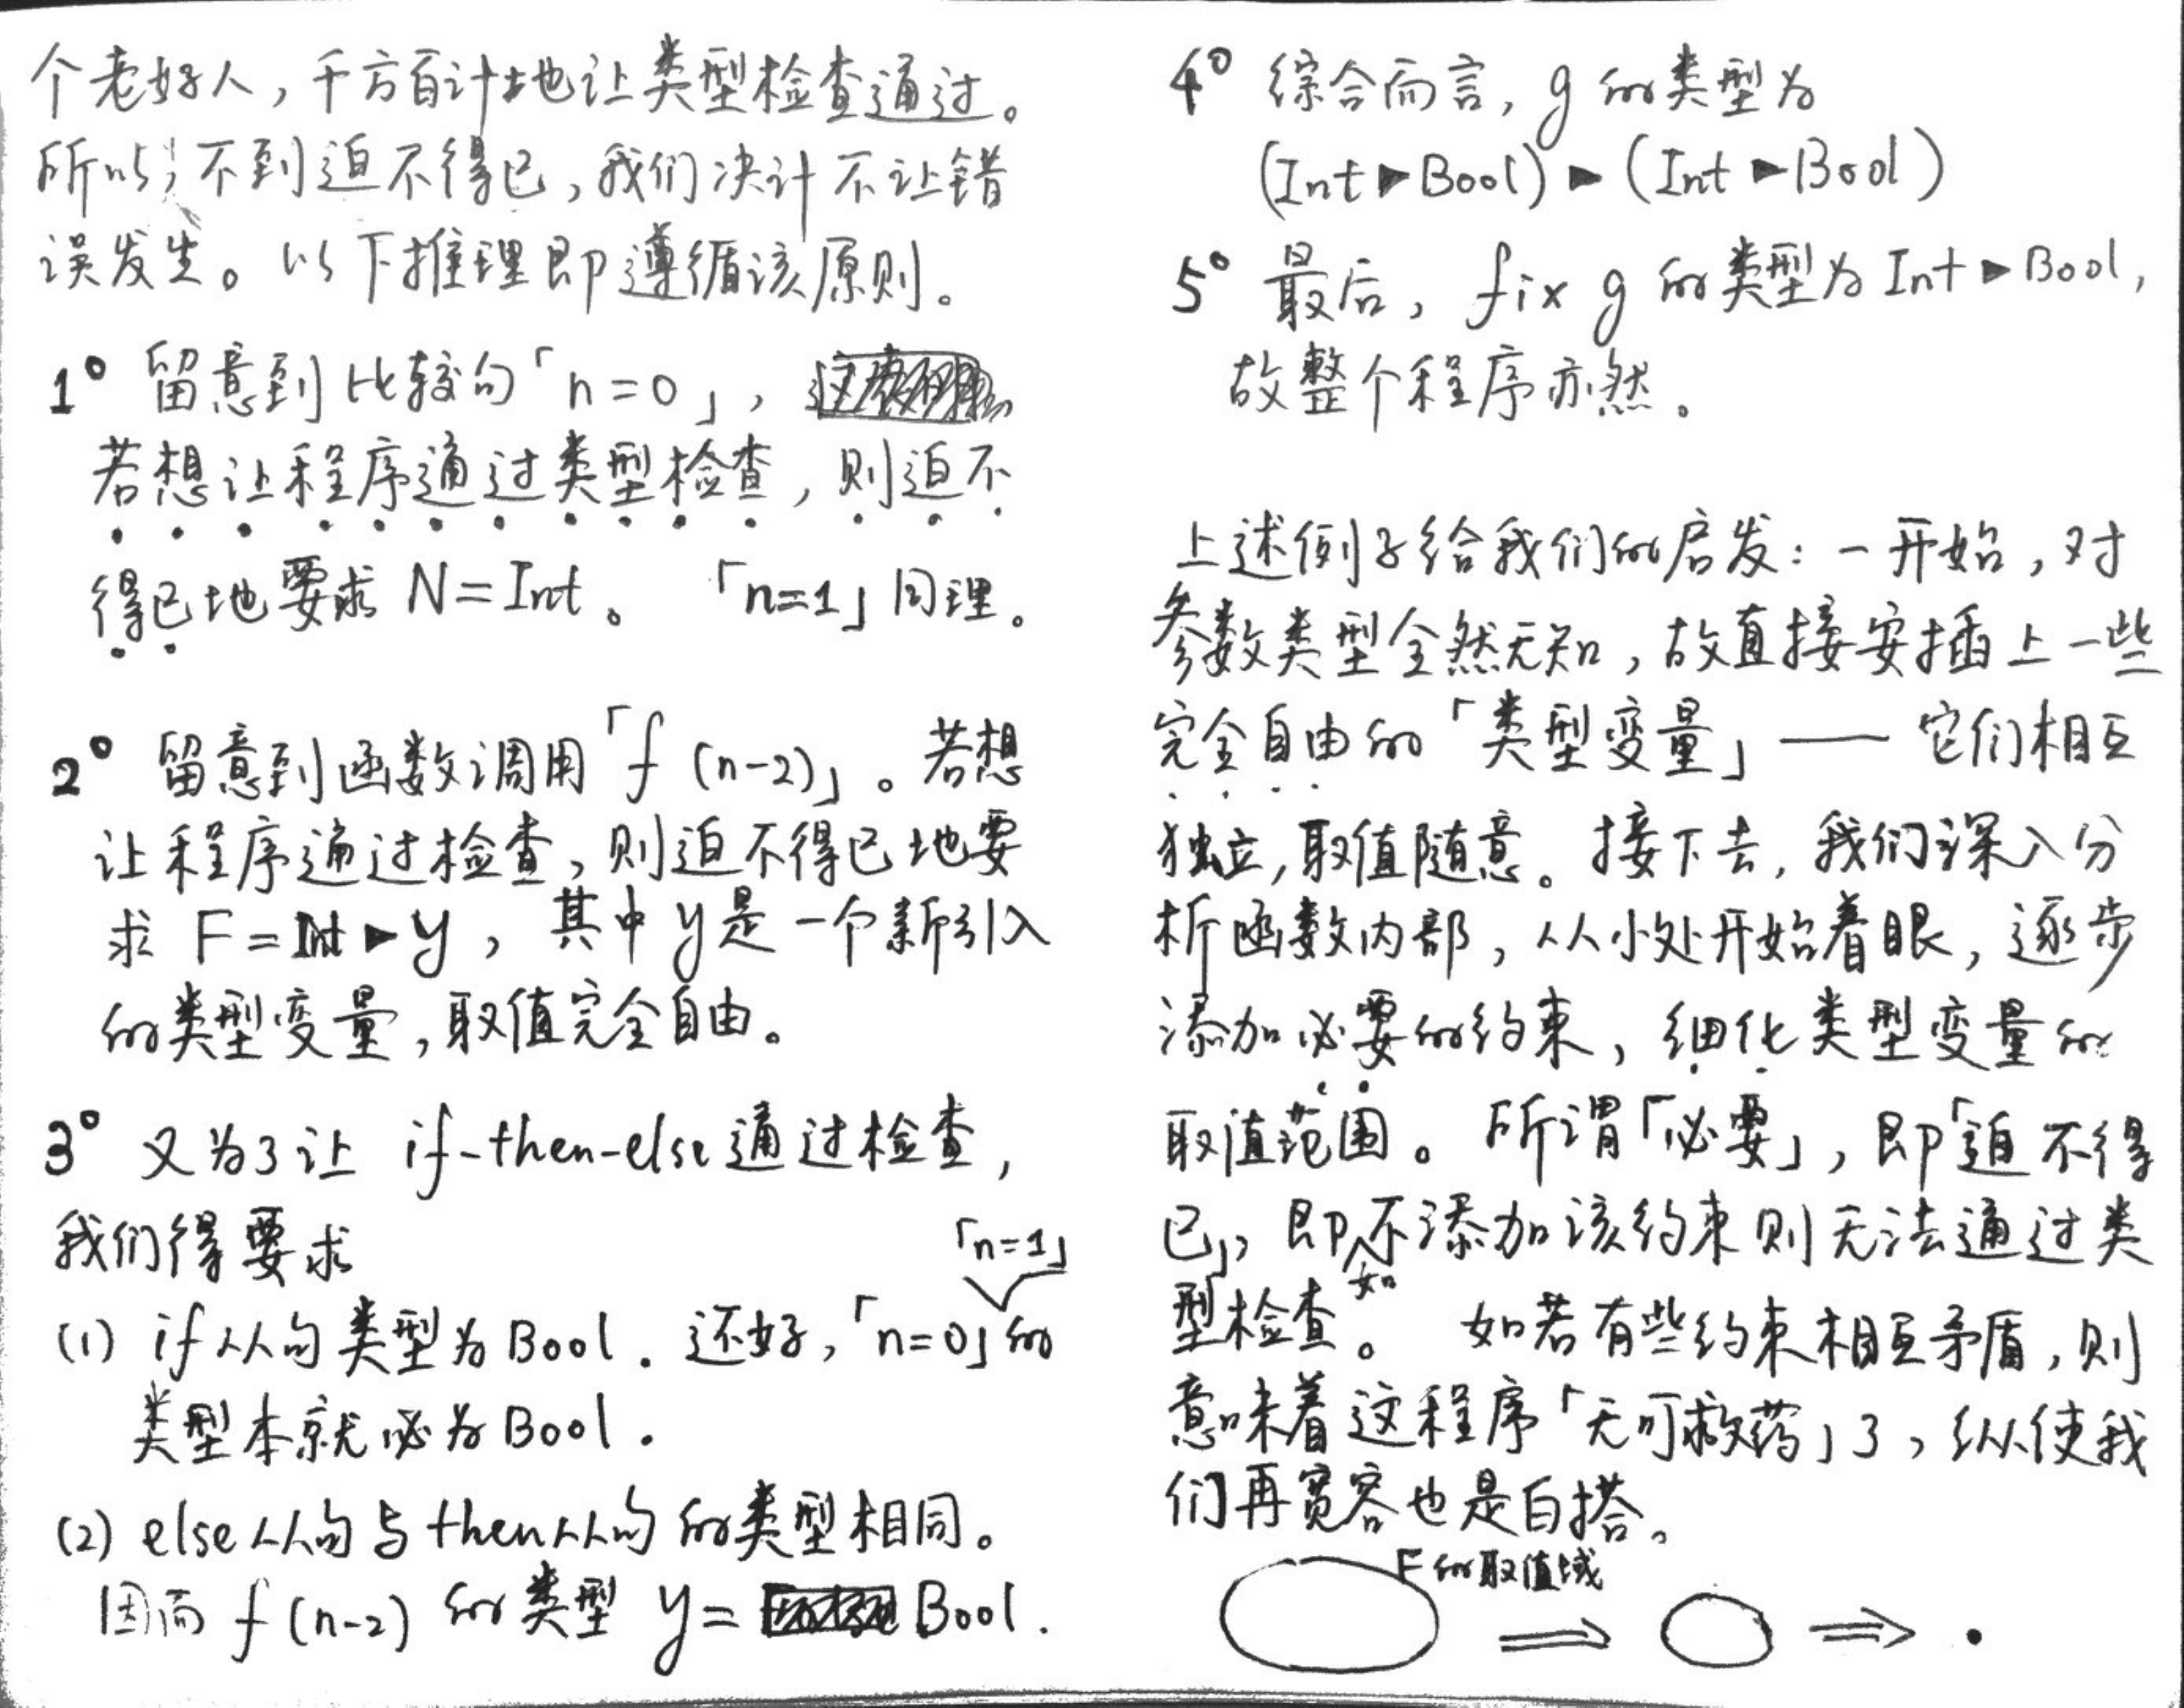 个老好人，千方百计地让类型检查通过。
所以，不到迫不得已，我们决计不让错
误发生。以下推理即遵循该原则。
1° 留意到比较句「n=0」，
若想让程序通过类型检查，则迫不
得已地要求 N=Int。 「n=1」同理。
2° 留意到函数调用「f (n-2)」。若想
让程序通过检查，则迫不得已地要
求 F=Int▸y，其中y是一个新引入
的类型变量，取值完全自由。
3° 又为了让 if-then-else通过检查，
我们得要求
「n=1」
(1) if从句类型为Bool. 还好，「n=0」的
类型本就必为Bool.
(2) else从句与then从句的类型相同。
因而 f(n-2) 的类型 y= Bool.
4° 综合而言，g的类型为
(Int▸Bool)▸(Int▸Bool)
5° 最后，fix g 的类型为Int▸Bool，
故整个程序亦然。
上述例子给我们的启发：一开始，对
参数类型全然无知，故直接安插上一些
完全自由的「类型变量」—— 它们相互
独立，取值随意。接下去，我们深入分
析函数内部，从小处开始着眼，逐步
添加必要的约束，细化类型变量的
取值范围。所谓「必要」，即「迫不得
已」，即不添加该约束则无法通过类
如
型检查。 如若有些约束相互矛盾，则
意味着这程序「无可救药」了，纵使我
们再宽容也是白搭。
F的取值域